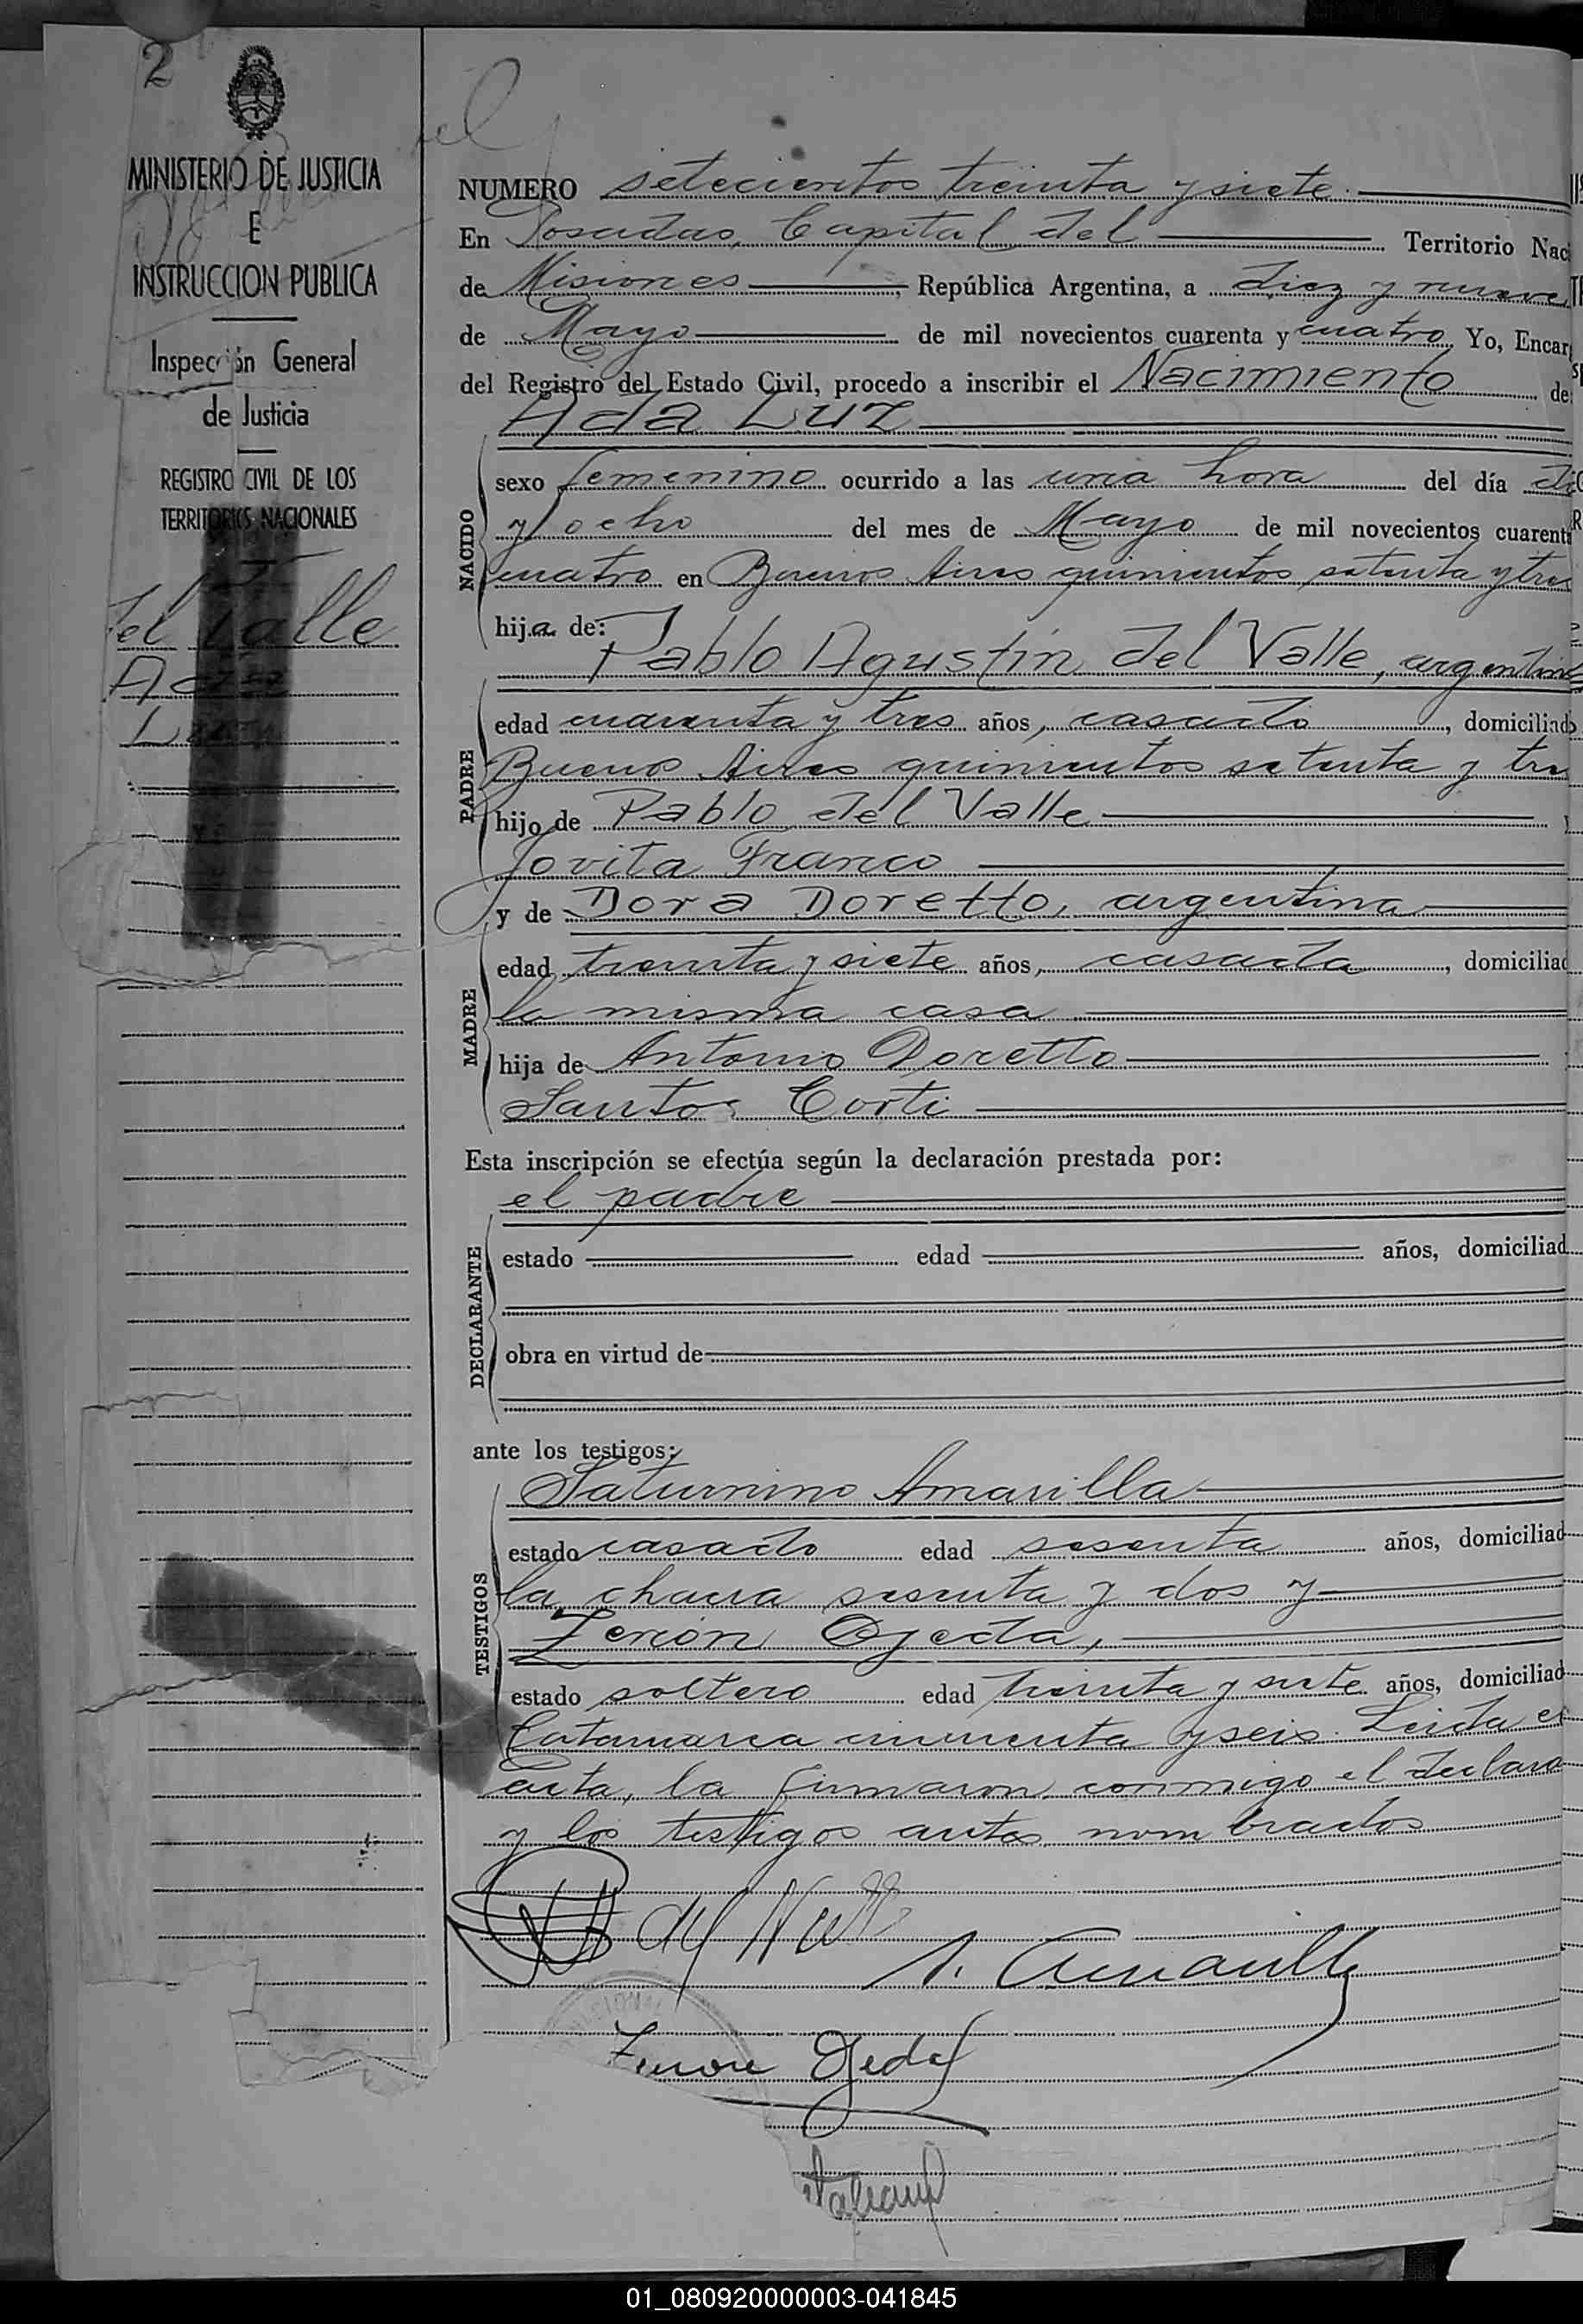 2
MINISTERIO DE JUSTICIA
E
INSTRUCCION PUBLICA
Inspección General
de Justicia
REGISTRO CIVIL DE LOS
TERRITORIOS NACIONALES
del Valle
Ada
Luz
NUMERO setecientos treinta y siete
En Posadas, Capital del Territorio Nac
de Misiones, República Argentina, a diez y nueve
de Mayo de mil novecientos cuarenta y cuatro Yo, Encar
del Registro del Estado Civil, procedo a inscribir el Nacimiento de
Ada Luz
NACIDO
sexo femenino ocurrido a las una hora del día di
y ocho del mes de Mayo de mil novecientos cuarent
cuatro en Buenos Aires quinientos setenta y tres
hija de:
Pablo Agustín del Valle, argentino
PADRE
edad cuarenta y tres años, casado, domiciliado
Buenos Aires quinientos setenta y tre
hijo de Pablo del Valle
Jovita Franco
y de Dora Doretto, argentina
MADRE
edad, treinta y siete años, casada, domiciliad
la misma casa
hija de Antonio Doretto
Santos Corti
Esta inscripción se efectúa según la declaración prestada por:
el padre
DECLARANTE
estado edad años, domiciliad
obra en virtud de
ante los testigos:
Saturnino Amarilla
TESTIGOS
estado casado edad sesenta años, domiciliad
la chacra sesenta y dos y
Zenón Ojeda,
estado soltero edad treinta y siete años, domiciliad
Catamarca cincuenta y seis. Leida el
acta, la firmaron conmigo el declara
y los testigos antes nombrados
del Valle
S. Amarilla
Zenon Ojeda
01_080920000003-041845